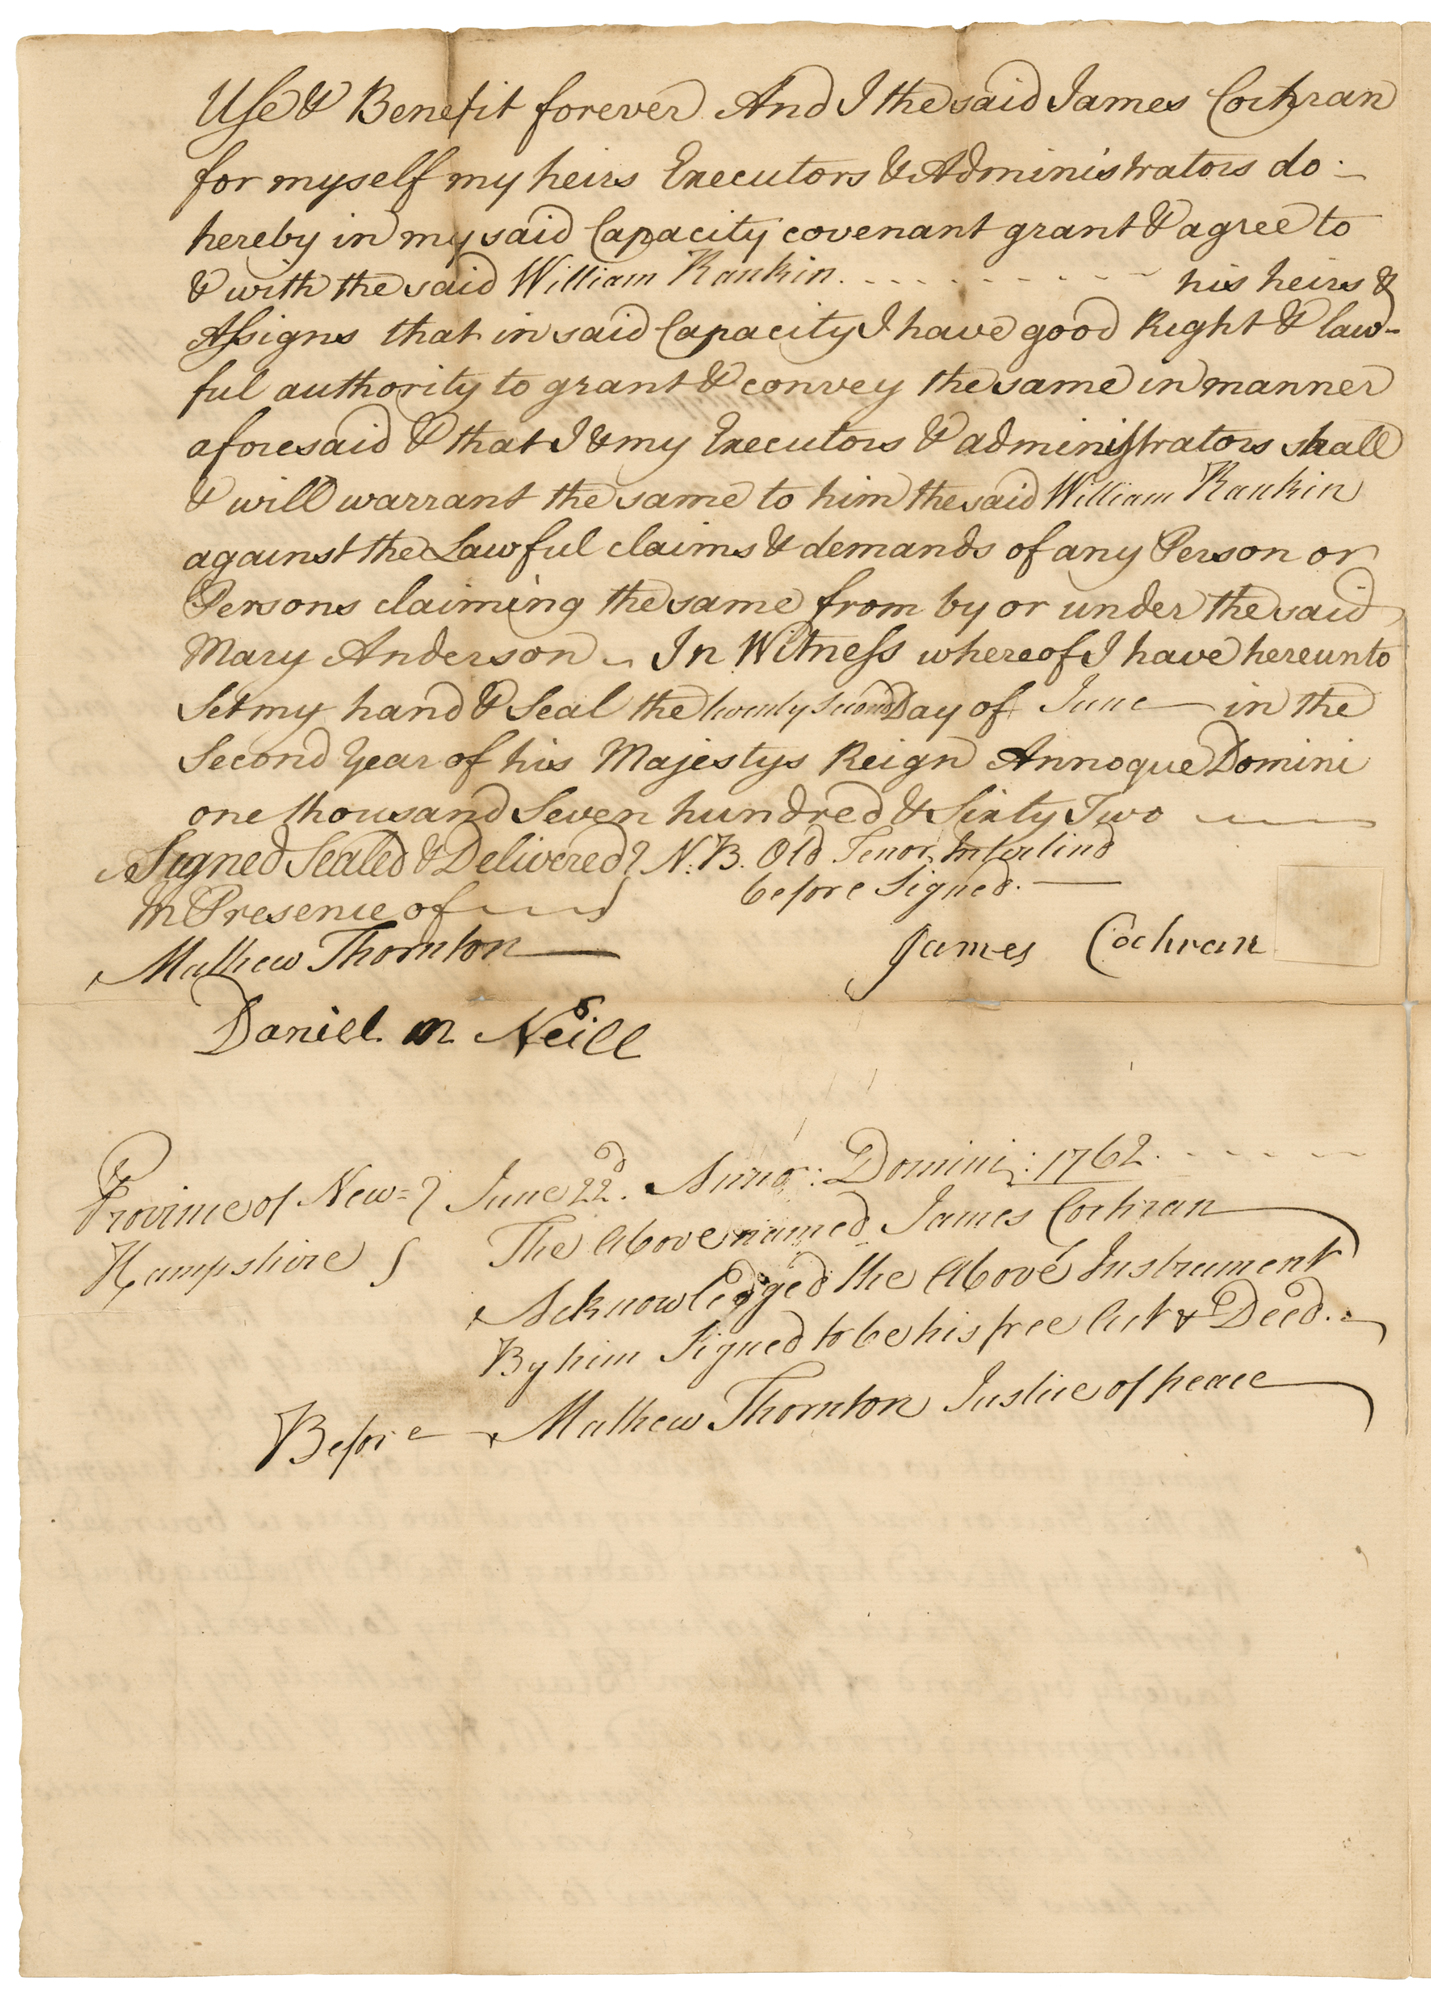 Use & Benefit forever And I the said James Cochran
for myself my heirs Executors & Administrators do -
hereby in my said Capacity covenant grant & agree to
& with the said William Rankin - - - - - - - - his heirs &
Assigns that in said Capacity I have good Right & law-
ful authority to grant & convey the same in manner
aforesaid & that I & my Executors & administrators shall
& will warrant the same to him the said William Rankin
against the Lawful claims & demands of any Person or
Persons claiming the same from by or under the said
Mary Anderson - In Witness whereof I have hereunto
Set my hand & Seal the twenty second Day of June in the
Second Year of his Majestys Reign Annoque Domini
one thousand Seven hundred & Sixty Two
Signed Sealed & Delivered } N.B. Old Tenor Interlind
In Presence of } before Signed.
Mathew Thornton James Cochran
Daniel m Neill
Province of New= } June 22d. Anno: Domini: 1762 - - - -
Hampshire } The Above named James Cochran
Acknowledged the Above Instrument
By him Signed to be his free Act & Deed.
Before Mathew Thornton Justice of peace